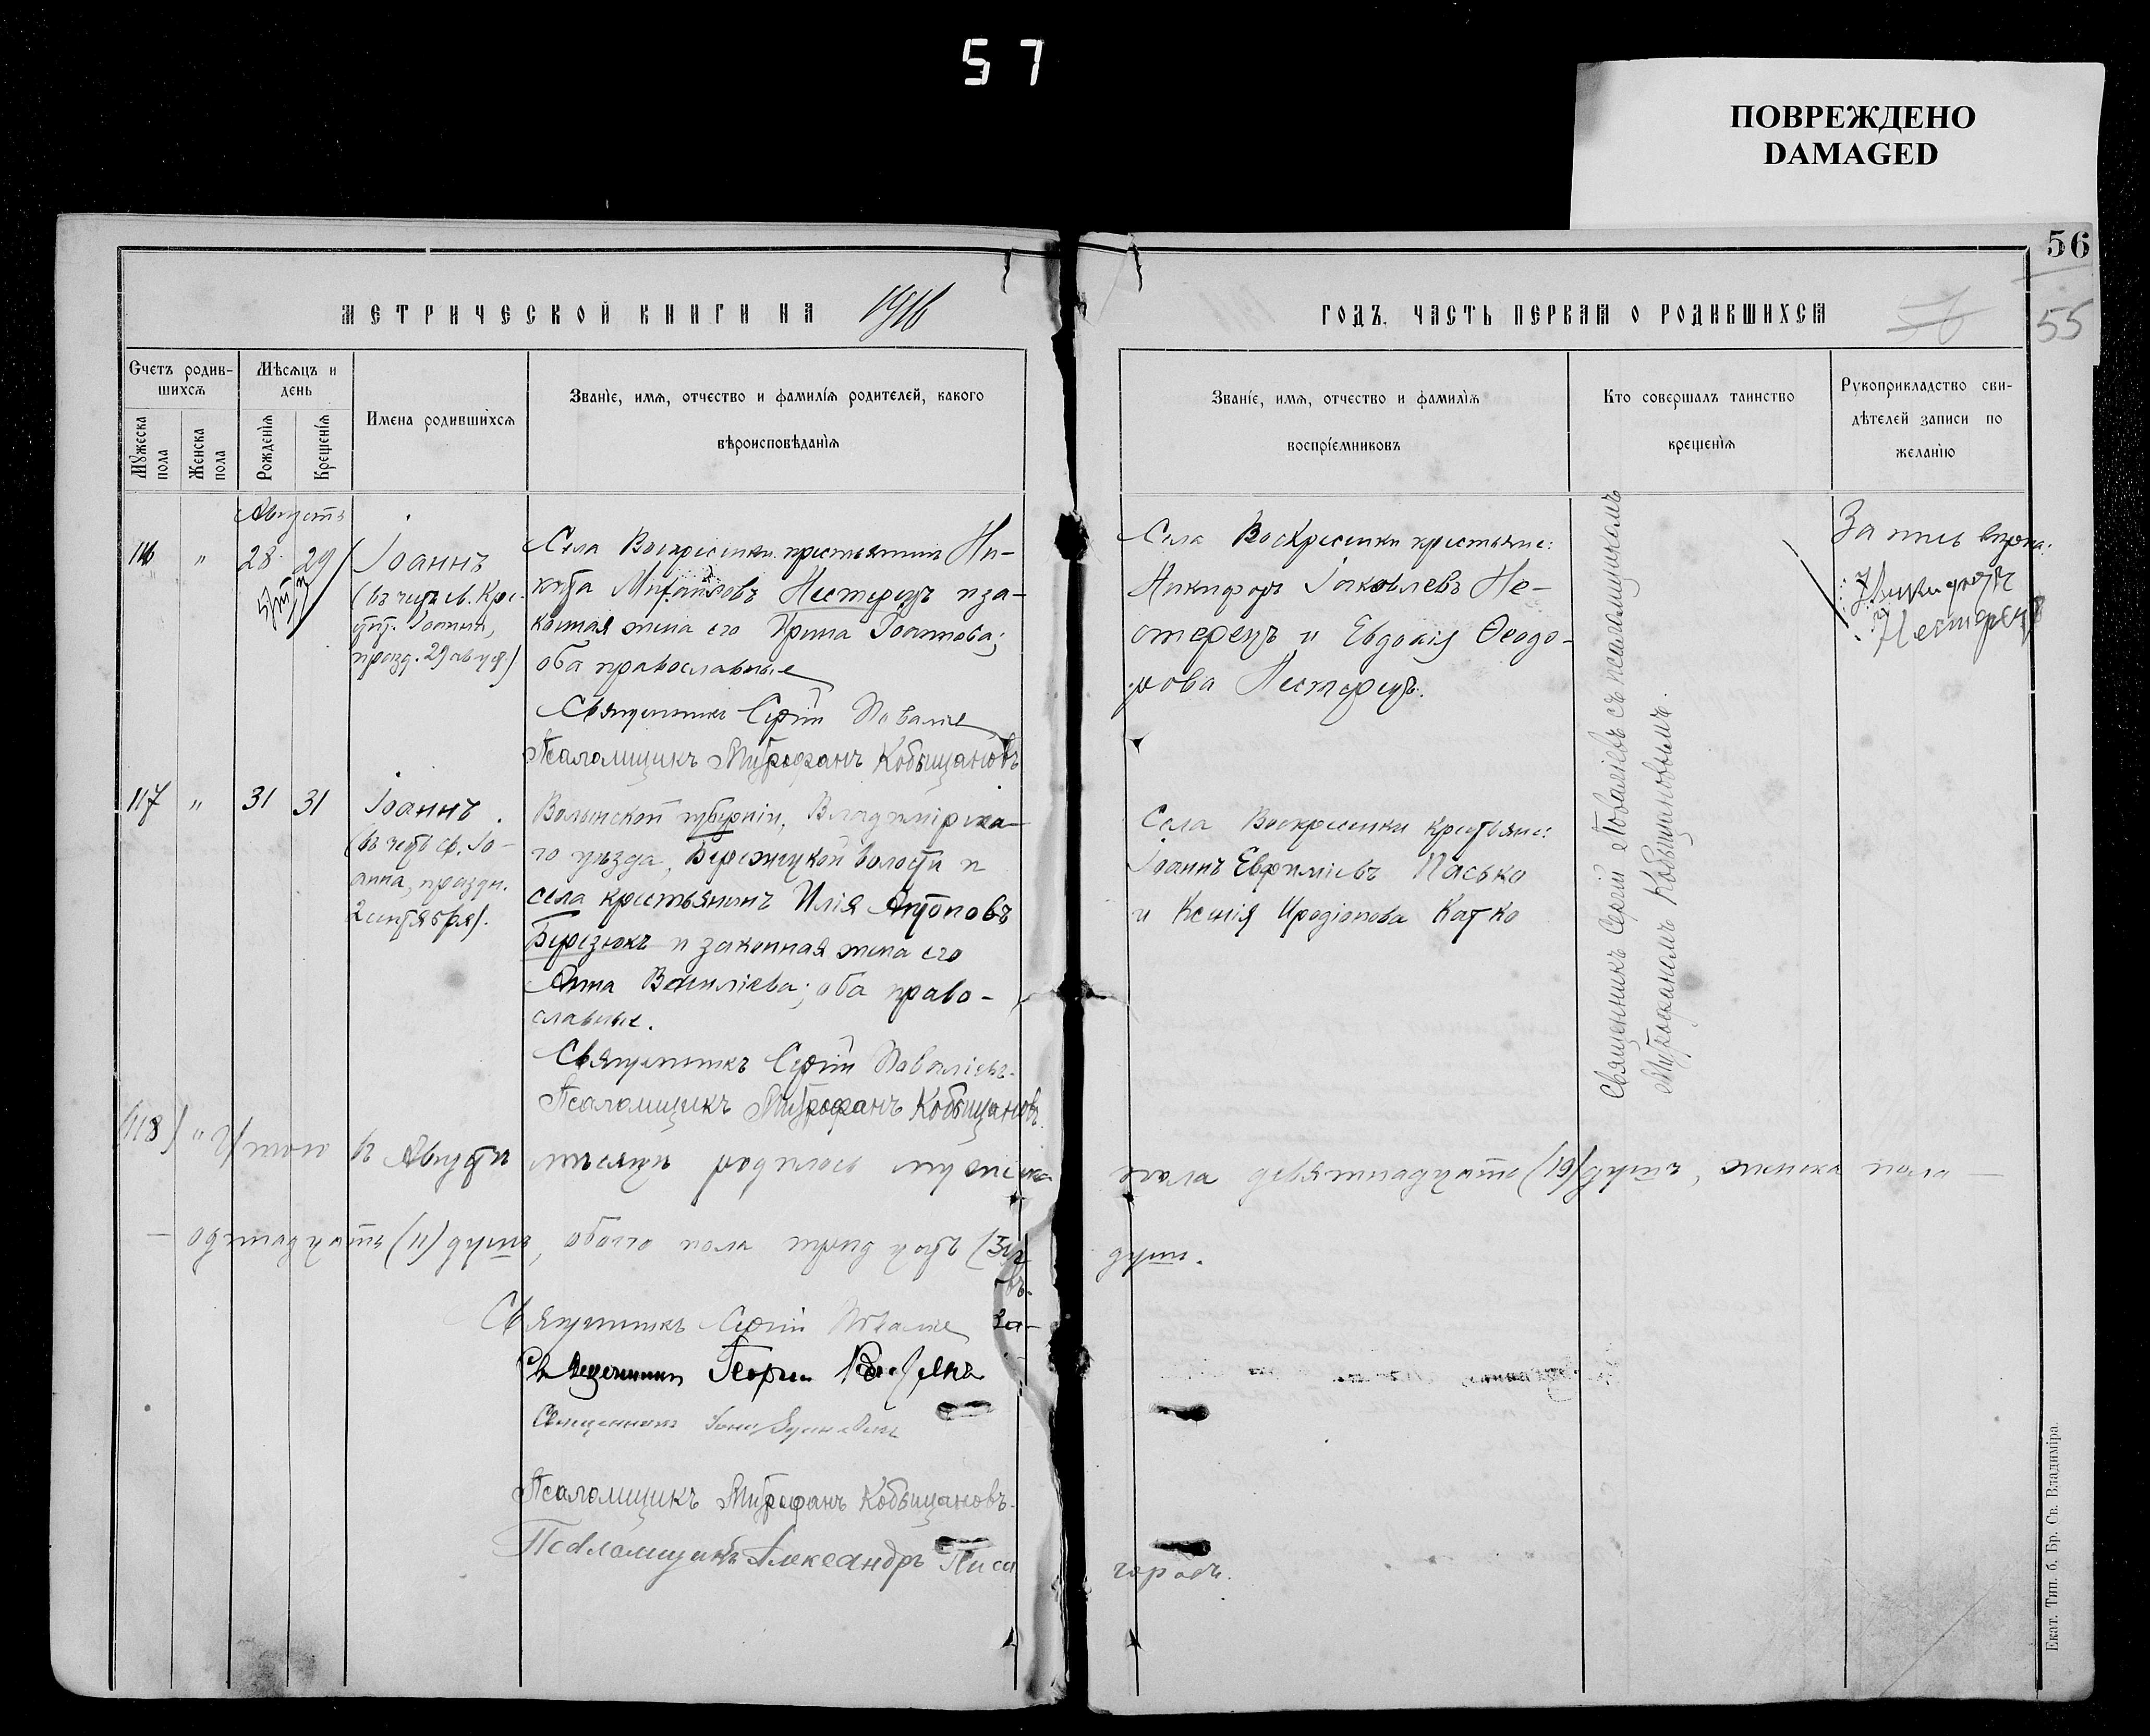 57
ПОВРЕЖДЕНО
DAMAGED
56
55
МЕТРИЧЕСКОЙ КНИГИ НА 1916
ГОДЪ. ЧАСТЬ ПЕРВАЯ О РОДИВШИХСЯ
Счетъ родив-
шихся
Мужеска
пола
Женска
пола
Мѣсяцъ и
день
Рожденія
Крещенія
Имена родившихся
Званіе, имя, отчество и фамилія родителей, какого
вѣроисповѣданія
Званіе, имя, отчество и фамилія
воспріемниковъ
Кто совершалъ таинство
крещенія
Рукоприкладство сви-
дѣтелей записи по
желанію
Августъ
116 " 28 29
Іоаннъ
(въ честь св. Крес.
Іоанна,
празд. 29 авг.)
Села Воскресенки крестьянинъ Ни-
кита Михайловъ Нестерецъ и за-
конная жена его Ирина Іоаннова;
оба православные
Священникъ Сергій Поваліев
Псаломщикъ Митрофанъ Кобыщановъ
Села Воскресенки крестьяне:
Никифоръ Іаковлевъ Не-
стерецъ и Евдокія Ѳеодо-
рова Нестерецъ.
Священникъ Сергій Поваліевъ съ псаломщикомъ
Митрофаномъ Кобыщановымъ.
Запись
Никифоръ
Нестерецъ
117 " 31 31
Іоаннъ
(въ честь св. Іо-
анна, праздн.
2 сентября).
Волынской губерніи, Владимірска-
го уѣзда, Бережецкой волости и
села крестьянинъ Илія Антоновъ
Березюкъ и законная жена его
Анна Василіева; оба право-
славные.
Священникъ Сергій Поваліевъ.
Псаломщикъ Митрофанъ Кобыщановъ.
Села Воскресенки крестьяне:
Іоаннъ Евфиміевъ Пасько
и Ксенія Иродіонова Катко
(118) " Итого въ Августѣ мѣсяцѣ родилось мужеска
пола девятнадцать (19) душъ, женска пола —
— одинадцать (11) душъ, обоего пола тридцать (30)
душъ.
Священникъ Сергій Поваліев
Священникъ Георгій
Священникъ
Псаломщикъ Митрофанъ Кобыщановъ.
Псаломщикъ Александръ Писа
Екат. Тип. б. Бр. Св. Владиміра